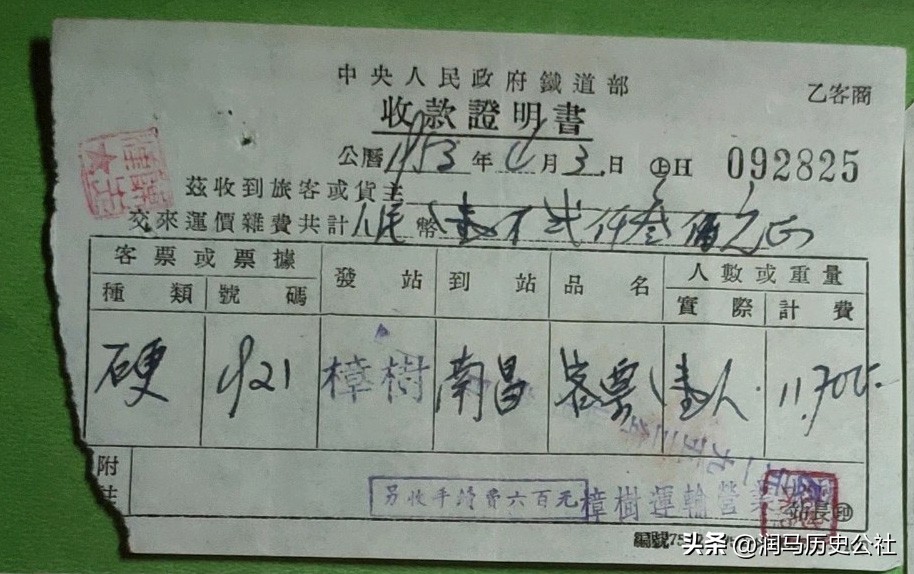 中央人民政府鐵道部
乙客商
收款證明書
公曆1953年4月3日 上H 092825
茲收到旅客或貨主
交來運價雜費共計人民幣壹万弍仟叁佰元正
客票或票據 發站 到站 品名 人數或重量
種類 號碼 實際 計費
硬 921 樟樹 南昌 客票 壹人 11.700
附註
另收手續費六百元
樟樹運輸營業
站長印
編號75
头条 @润马历史公社